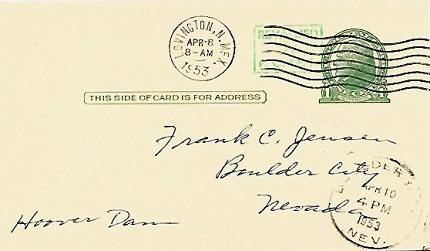 LOVINGTON, N. MEX.
APR 8
8-AM
1953
THIS SIDE OF CARD IS FOR ADDRESS
Frank C. Jensen
Boulder City
Nevada
Hoover Dam
APR 10
4 PM
1953
NEV.